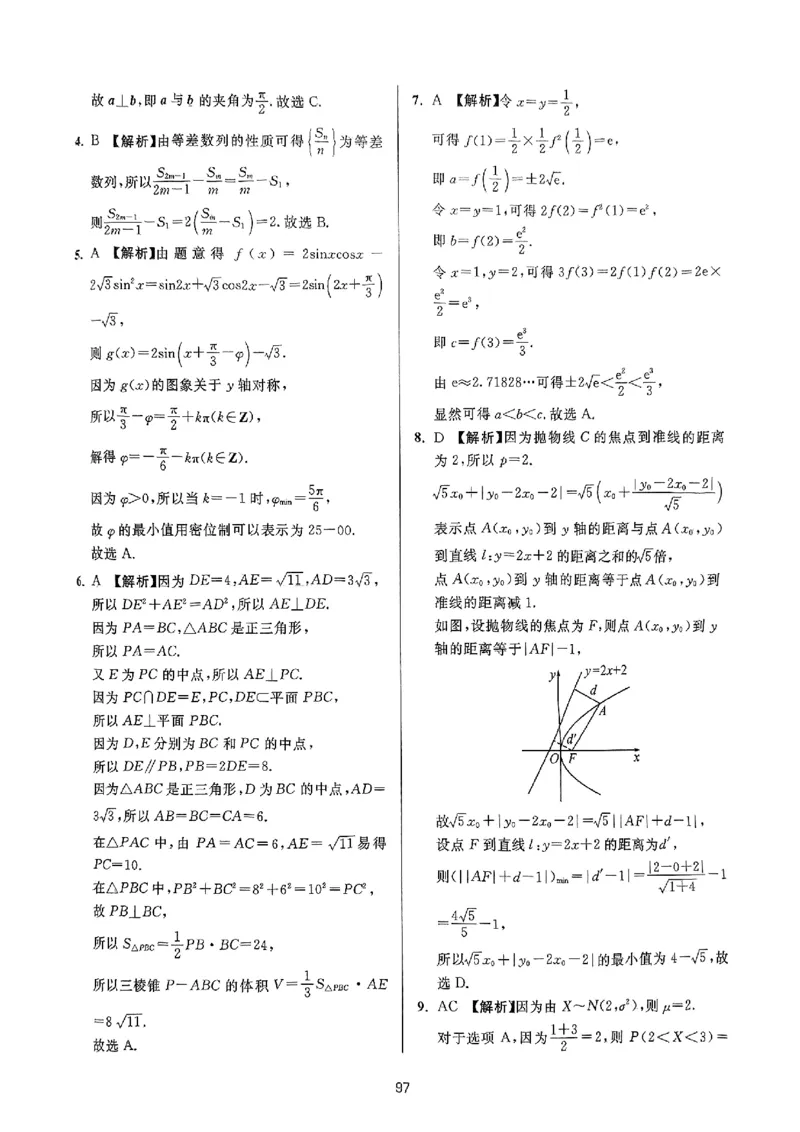 故a⊥b,即a与b的夹角为π/2.故选C.
4. B 【解析】由等差数列的性质可得{Sₙ/n}为等差
数列,所以S₂ₘ₋₁/(2m−1)−Sₘ/m=Sₘ/m−S₁,
则S₂ₘ₋₁/(2m−1)−S₁=2(Sₘ/m−S₁)=2.故选B.
5. A 【解析】由题意得 f(x)=2sinxcosx−
2√3sin²x=sin2x+√3cos2x−√3=2sin(2x+π/3)
−√3,
则g(x)=2sin(x+π/3−φ)−√3.
因为g(x)的图象关于y轴对称,
所以π/3−φ=π/2+kπ(k∈Z),
解得φ=−π/6−kπ(k∈Z).
因为φ>0,所以当k=−1时,φmin=5π/6,
故φ的最小值用密位制可以表示为25−00.
故选A.
6. A 【解析】因为DE=4,AE=√11,AD=3√3,
所以DE²+AE²=AD²,所以AE⊥DE.
因为PA=BC,△ABC是正三角形,
所以PA=AC.
又E为PC的中点,所以AE⊥PC.
因为PC∩DE=E,PC,DE⊂平面PBC,
所以AE⊥平面PBC.
因为D,E分别为BC和PC的中点,
所以DE∥PB,PB=2DE=8.
因为△ABC是正三角形,D为BC的中点,AD=
3√3,所以AB=BC=CA=6.
在△PAC中,由PA=AC=6,AE=√11易得
PC=10.
在△PBC中,PB²+BC²=8²+6²=10²=PC²,
故PB⊥BC,
所以S△PBC=1/2PB·BC=24,
所以三棱锥P−ABC的体积V=1/3S△PBC·AE
=8√11.
故选A.
7. A 【解析】令x=y=1/2,
可得f(1)=1/2×1/2f²(1/2)=e,
即a=f(1/2)=±2√e.
令x=y=1,可得2f(2)=f²(1)=e²,
即b=f(2)=e²/2.
令x=1,y=2,可得3f(3)=2f(1)f(2)=2e×
e²/2=e³,
即c=f(3)=e³/3.
由e≈2.71828…可得±2√e<e²/2<e³/3,
显然可得a<b<c.故选A.
8. D 【解析】因为抛物线C的焦点到准线的距离
为2,所以p=2.
√5x₀+|y₀−2x₀−2|=√5(x₀+|y₀−2x₀−2|/√5)
表示点A(x₀,y₀)到y轴的距离与点A(x₀,y₀)
到直线l:y=2x+2的距离之和的√5倍,
点A(x₀,y₀)到y轴的距离等于点A(x₀,y₀)到
准线的距离减1.
如图,设抛物线的焦点为F,则点A(x₀,y₀)到y
轴的距离等于|AF|−1,
y y=2x+2
d
A
d′
O F x
故√5x₀+|y₀−2x₀−2|=√5||AF|+d−1|,
设点F到直线l:y=2x+2的距离为d′,
则(||AF|+d−1|)min=|d′−1|=|2−0+2|/√(1+4)−1
=4√5/5−1,
所以√5x₀+|y₀−2x₀−2|的最小值为4−√5,故
选D.
9. AC 【解析】因为由X~N(2,σ²),则μ=2.
对于选项A,因为(1+3)/2=2,则P(2<X<3)=
97